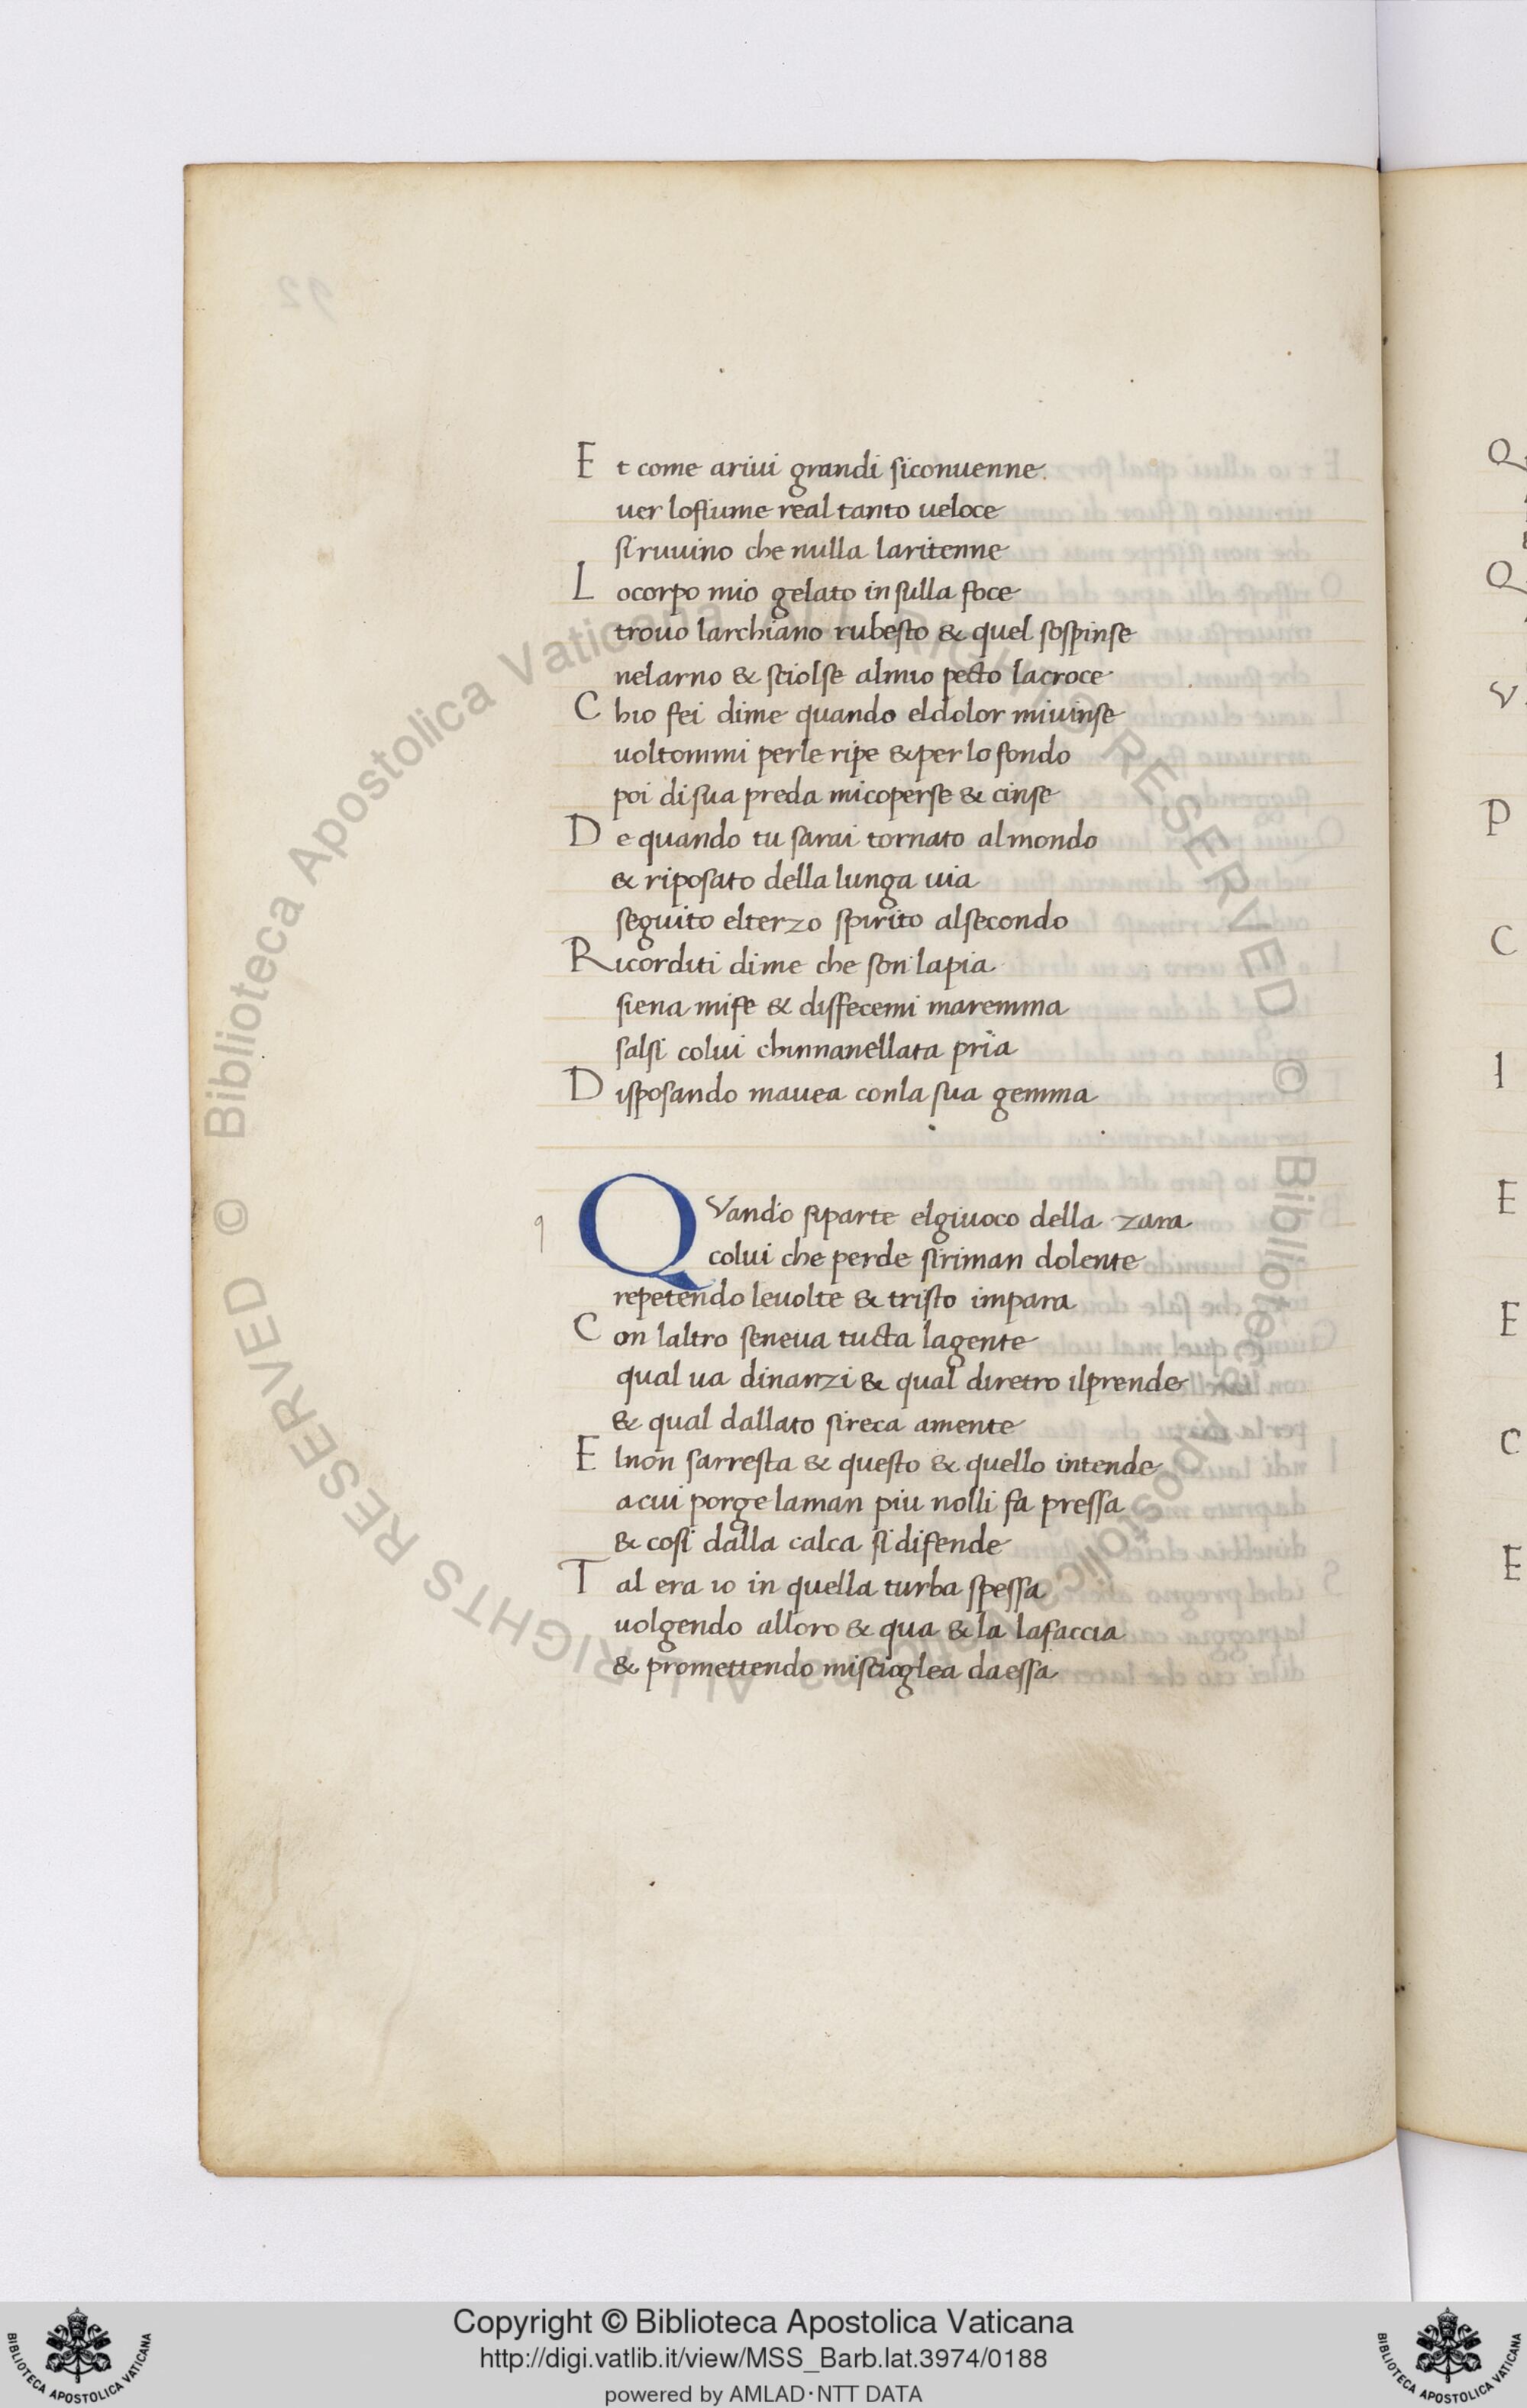 Et come ariui grandi siconuenne
uer lofiume real tanto ueloce
si ruuino che nulla laritenne
Locorpo mio gelato in sulla foce
trouo larchiano rubesto & quel sospinse
nelarno & sciolse almio pecto lacroce
Chio fei dime quando eldolor miuinse
uoltommi perle ripe & per lo fondo
poi di sua preda micoperse & cinse
De quando tu sarai tornato almondo
& riposato della lunga uia
seguito elterzo spirito alsecondo
Ricorditi dime che son lapia
siena mi fe & disfecemi maremma
salsi colui chinnanellata pria
Disposando mauea conla sua gemma
q
QVando siparte elgiuoco della zara
colui che perde siriman dolente
repetendo leuolte & tristo impara
Con laltro seneua tucta lagente
qual ua dinanzi & qual diretro ilprende
& qual dallato sireca amente
Elnon sarresta & questo & quello intende
a cui porge laman piu nolli fa pressa
& cosi dalla calca si difende
Tal era io in quella turba spessa
uolgendo alloro & qua & la lafaccia
& promettendo miscioglea da essa
Q
Q
V
P
C
I
E
E
C
E
© Biblioteca Apostolica Vaticana ALL RIGHTS RESERVED © Biblioteca Apostolica Vaticana ALL RIGHTS RESERVED
Copyright © Biblioteca Apostolica Vaticana
http://digi.vatlib.it/view/MSS_Barb.lat.3974/0188
powered by AMLAD·NTT DATA
BIBLIOTECA APOSTOLICA VATICANA
BIBLIOTECA APOSTOLICA VATICANA